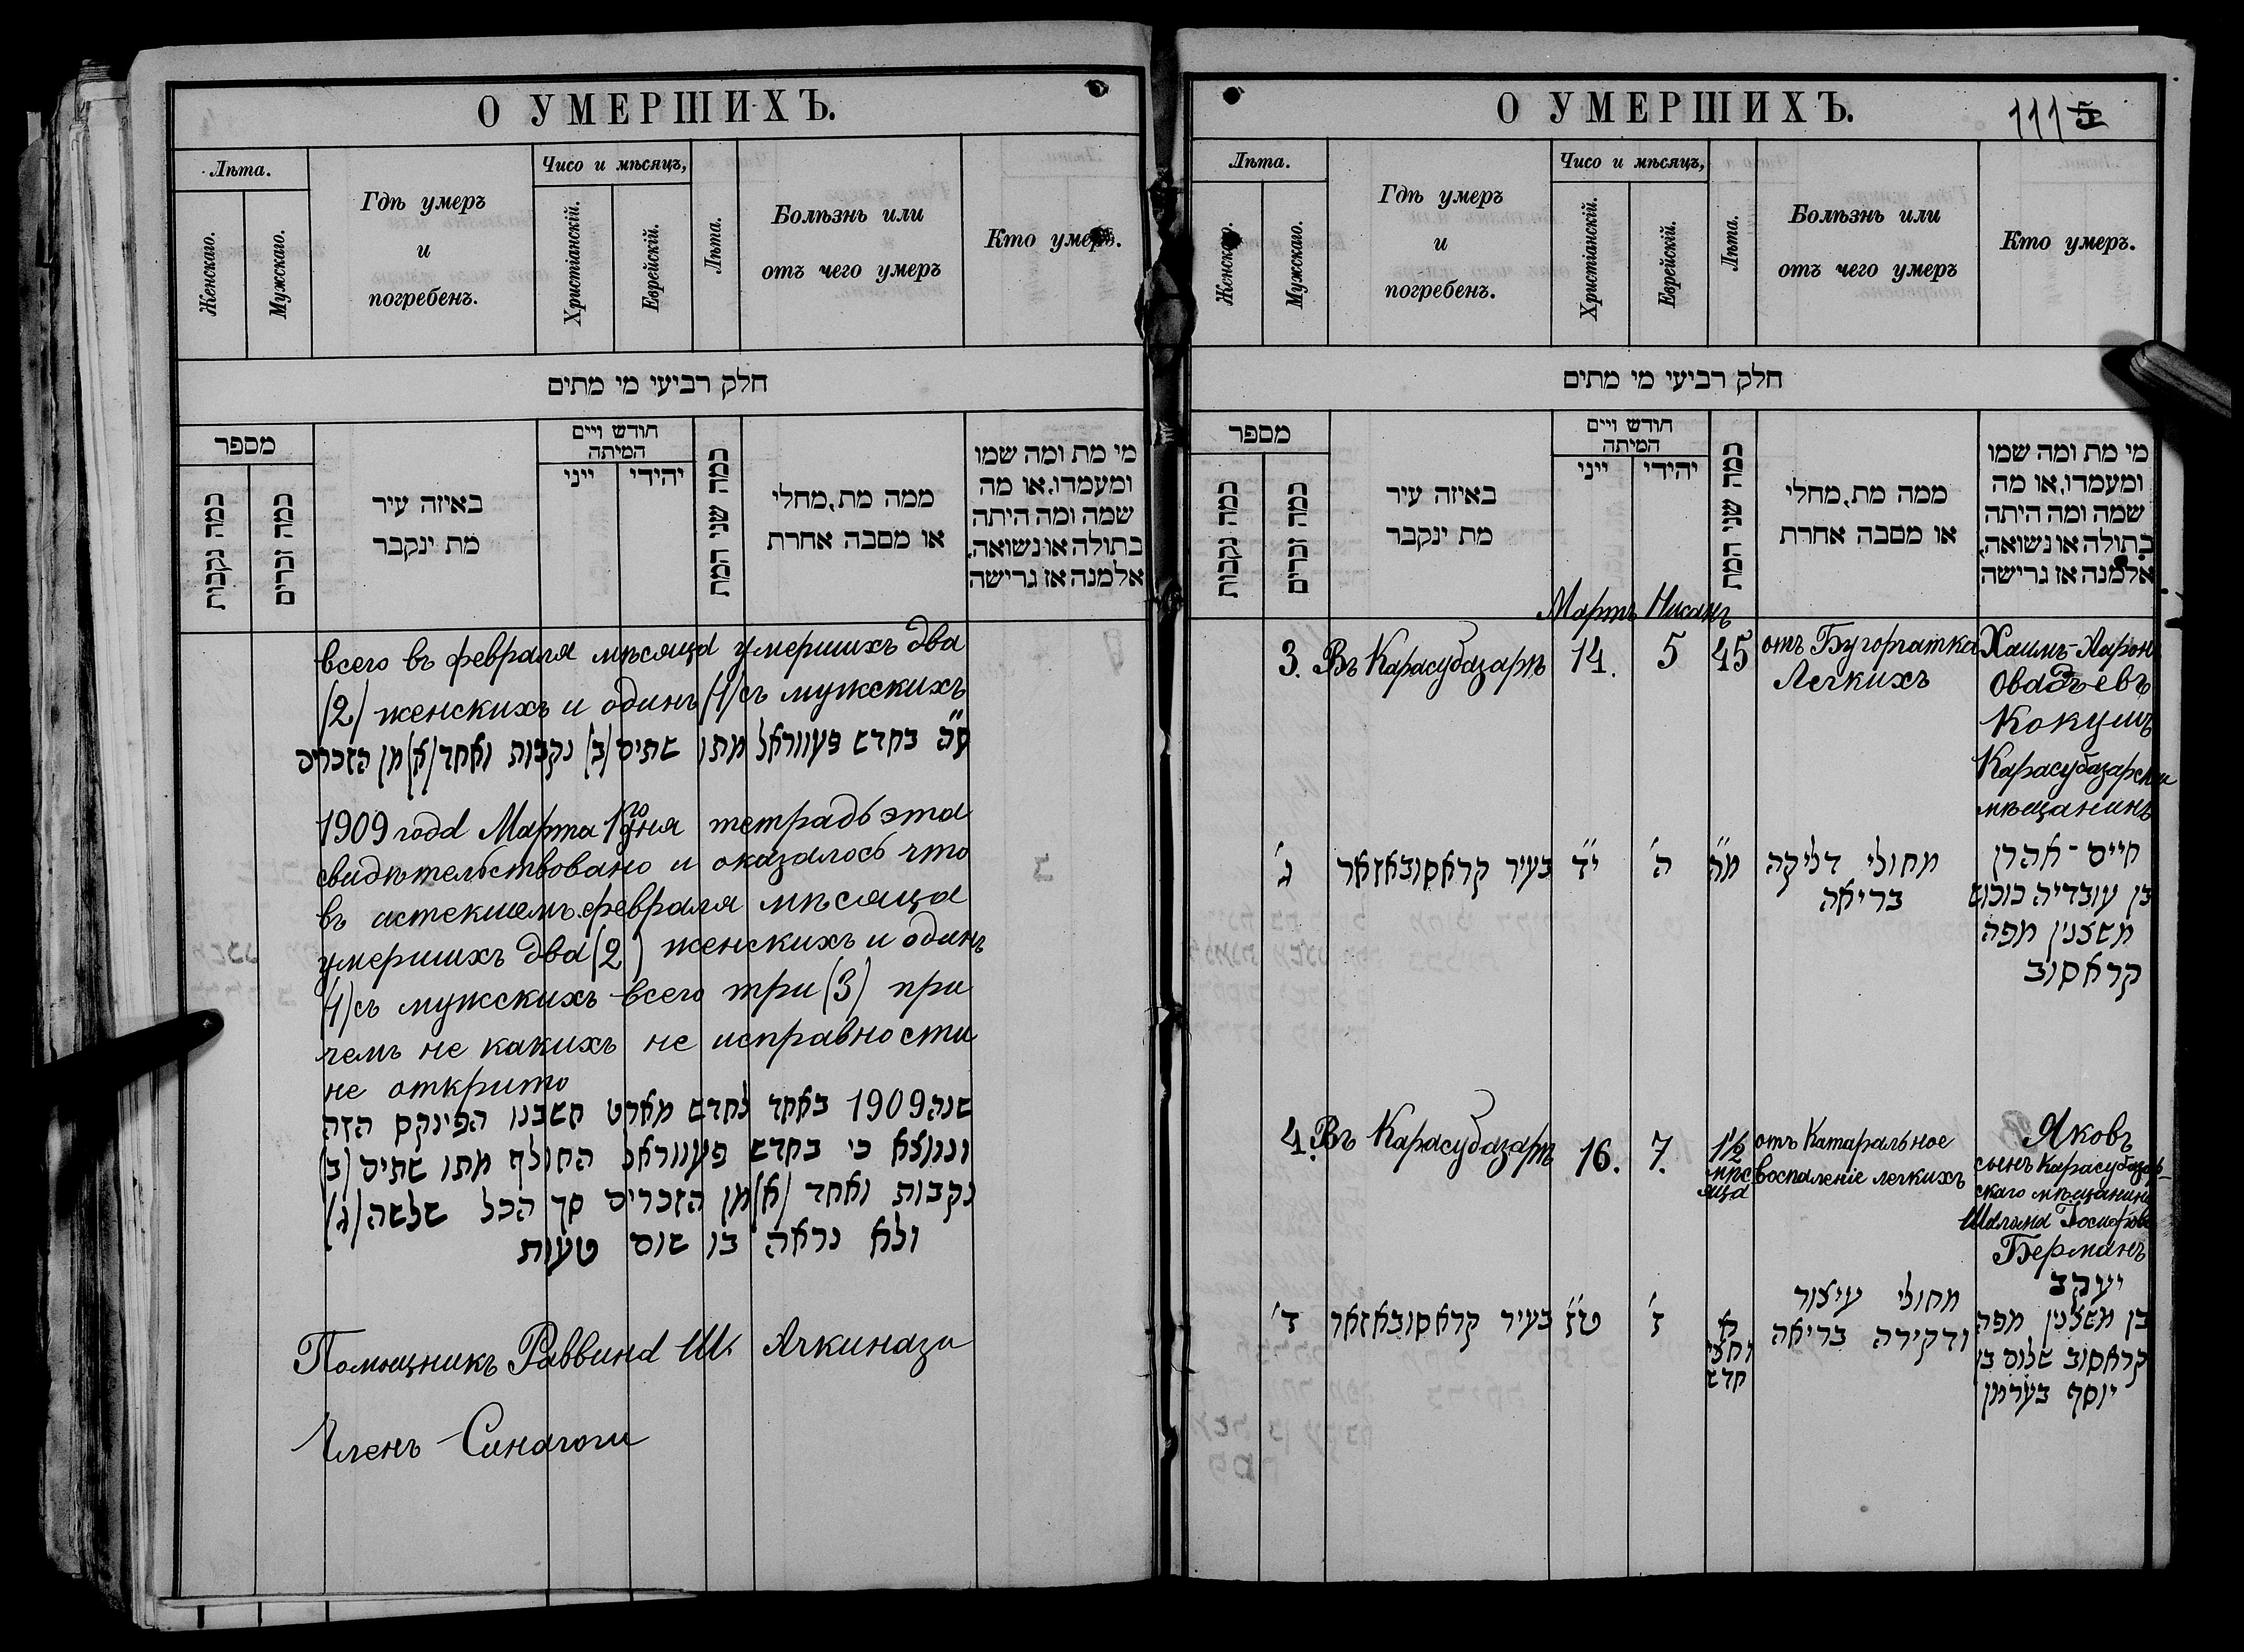 О УМЕРШИХЪ.
Лѣта.
Женскаго.
Мужскаго.
Гдѣ умеръ
и
погребенъ.
Чисо и мѣсяцъ,
Христіанскій.
Еврейскій.
Лѣта.
Болѣзнь или
отъ чего умеръ
Кто умеръ.
חלק רביעי מי מתים
מספר
כמה נקבות
כמה זכרים
באיזה עיר
מת ינקבר
חודש ויים
המיתה
ייני
יהידי
כמה שני המת
ממה מת, מחלי
או מסבה אחרת
מי מת ומה שמו
ומעמדו, או מה
שמה ומה היתה
בתולה או נשואה,
אלמנה אז גרישה
всего въ февраля мѣсяца умершихъ два
(2) женскихъ и одинъ (1) съ мужскихъ
ס"ה בחדש פעווראל מתו שתים (ב) נקבות ואחד (א) מן הזכרים
1909 года Марта 1го дня тетрадь эта
свидѣтельствовано и оказалось что
въ истекшемъ февраля мѣсяца
умершихъ два (2) женскихъ и одинъ
(1) съ мужскихъ всего три (3) при
чемъ не какихъ не исправности
не открито
שנה 1909 באחד לחדש מארט חשבנו הפינקס הזה
ונמצא כי בחדש פעווראל החולף מתו שתים (ב)
נקבות ואחד (א) מן הזכרים סך הכל שלשה (ג)
ולא נראה בו שום טעות
Помощникъ Раввина Ш. Ачкинази
Членъ Синагоги
О УМЕРШИХЪ.
111 5
Лѣта.
Женскаго.
Мужскаго.
Гдѣ умеръ
и
погребенъ.
Чисо и мѣсяцъ,
Христіанскій.
Еврейскій.
Лѣта.
Болѣзнь или
отъ чего умеръ
Кто умеръ.
חלק רביעי מי מתים
מספר
כמה נקבות
כמה זכרים
באיזה עיר
מת ינקבר
חודש ויים
המיתה
ייני
יהידי
כמה שני המת
ממה מת, מחלי
או מסבה אחרת
מי מת ומה שמו
ומעמדו, או מה
שמה ומה היתה
בתולה או נשואה,
אלמנה אז גרישה
Мартъ Нисанъ
3. Въ Карасубазарѣ 14. 5 45 отъ Бугорчатка Хаимъ-Аронъ
Легкихъ Овадьевъ
Кокушъ
Карасубазарски
мѣщанинъ
ג' בעיר קראסובאזאר י"ד ה' מ"ה מחולי דליקה חיים-אהרן
בריאה בן עובדיה כוכוש
משצנין מפה
קראסוב
4. Въ Карасубазарѣ 16. 7. 1½ отъ Катаральное Яковъ
мѣс воспаленіе легкихъ сынъ Карасубазар-
яца скаго мѣщанина
Шалома Іосифова
Берманъ
ד' בעיר קראסובאזאר ט"ז ז' א מחולי עיצור יעקב
וחצי ודקירה בריאה בן משצנין מפה
חדש קראסוב שלום בן
יוסף בערמן